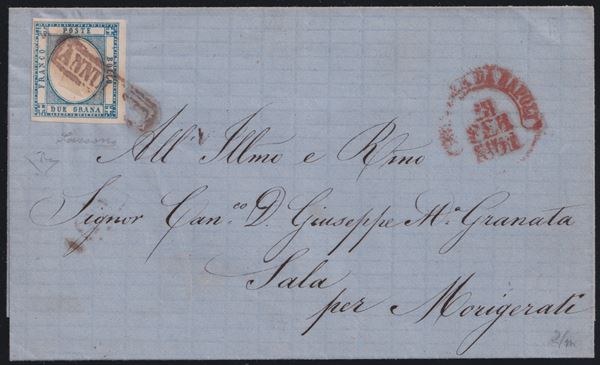 POSTE
FRANCO
BOLLO
DUE GRANA
ANN
FEB
All' Illmo e Rmo
Signor Can.co D. Giuseppe Ma. Granata
Sala
per Morigerati